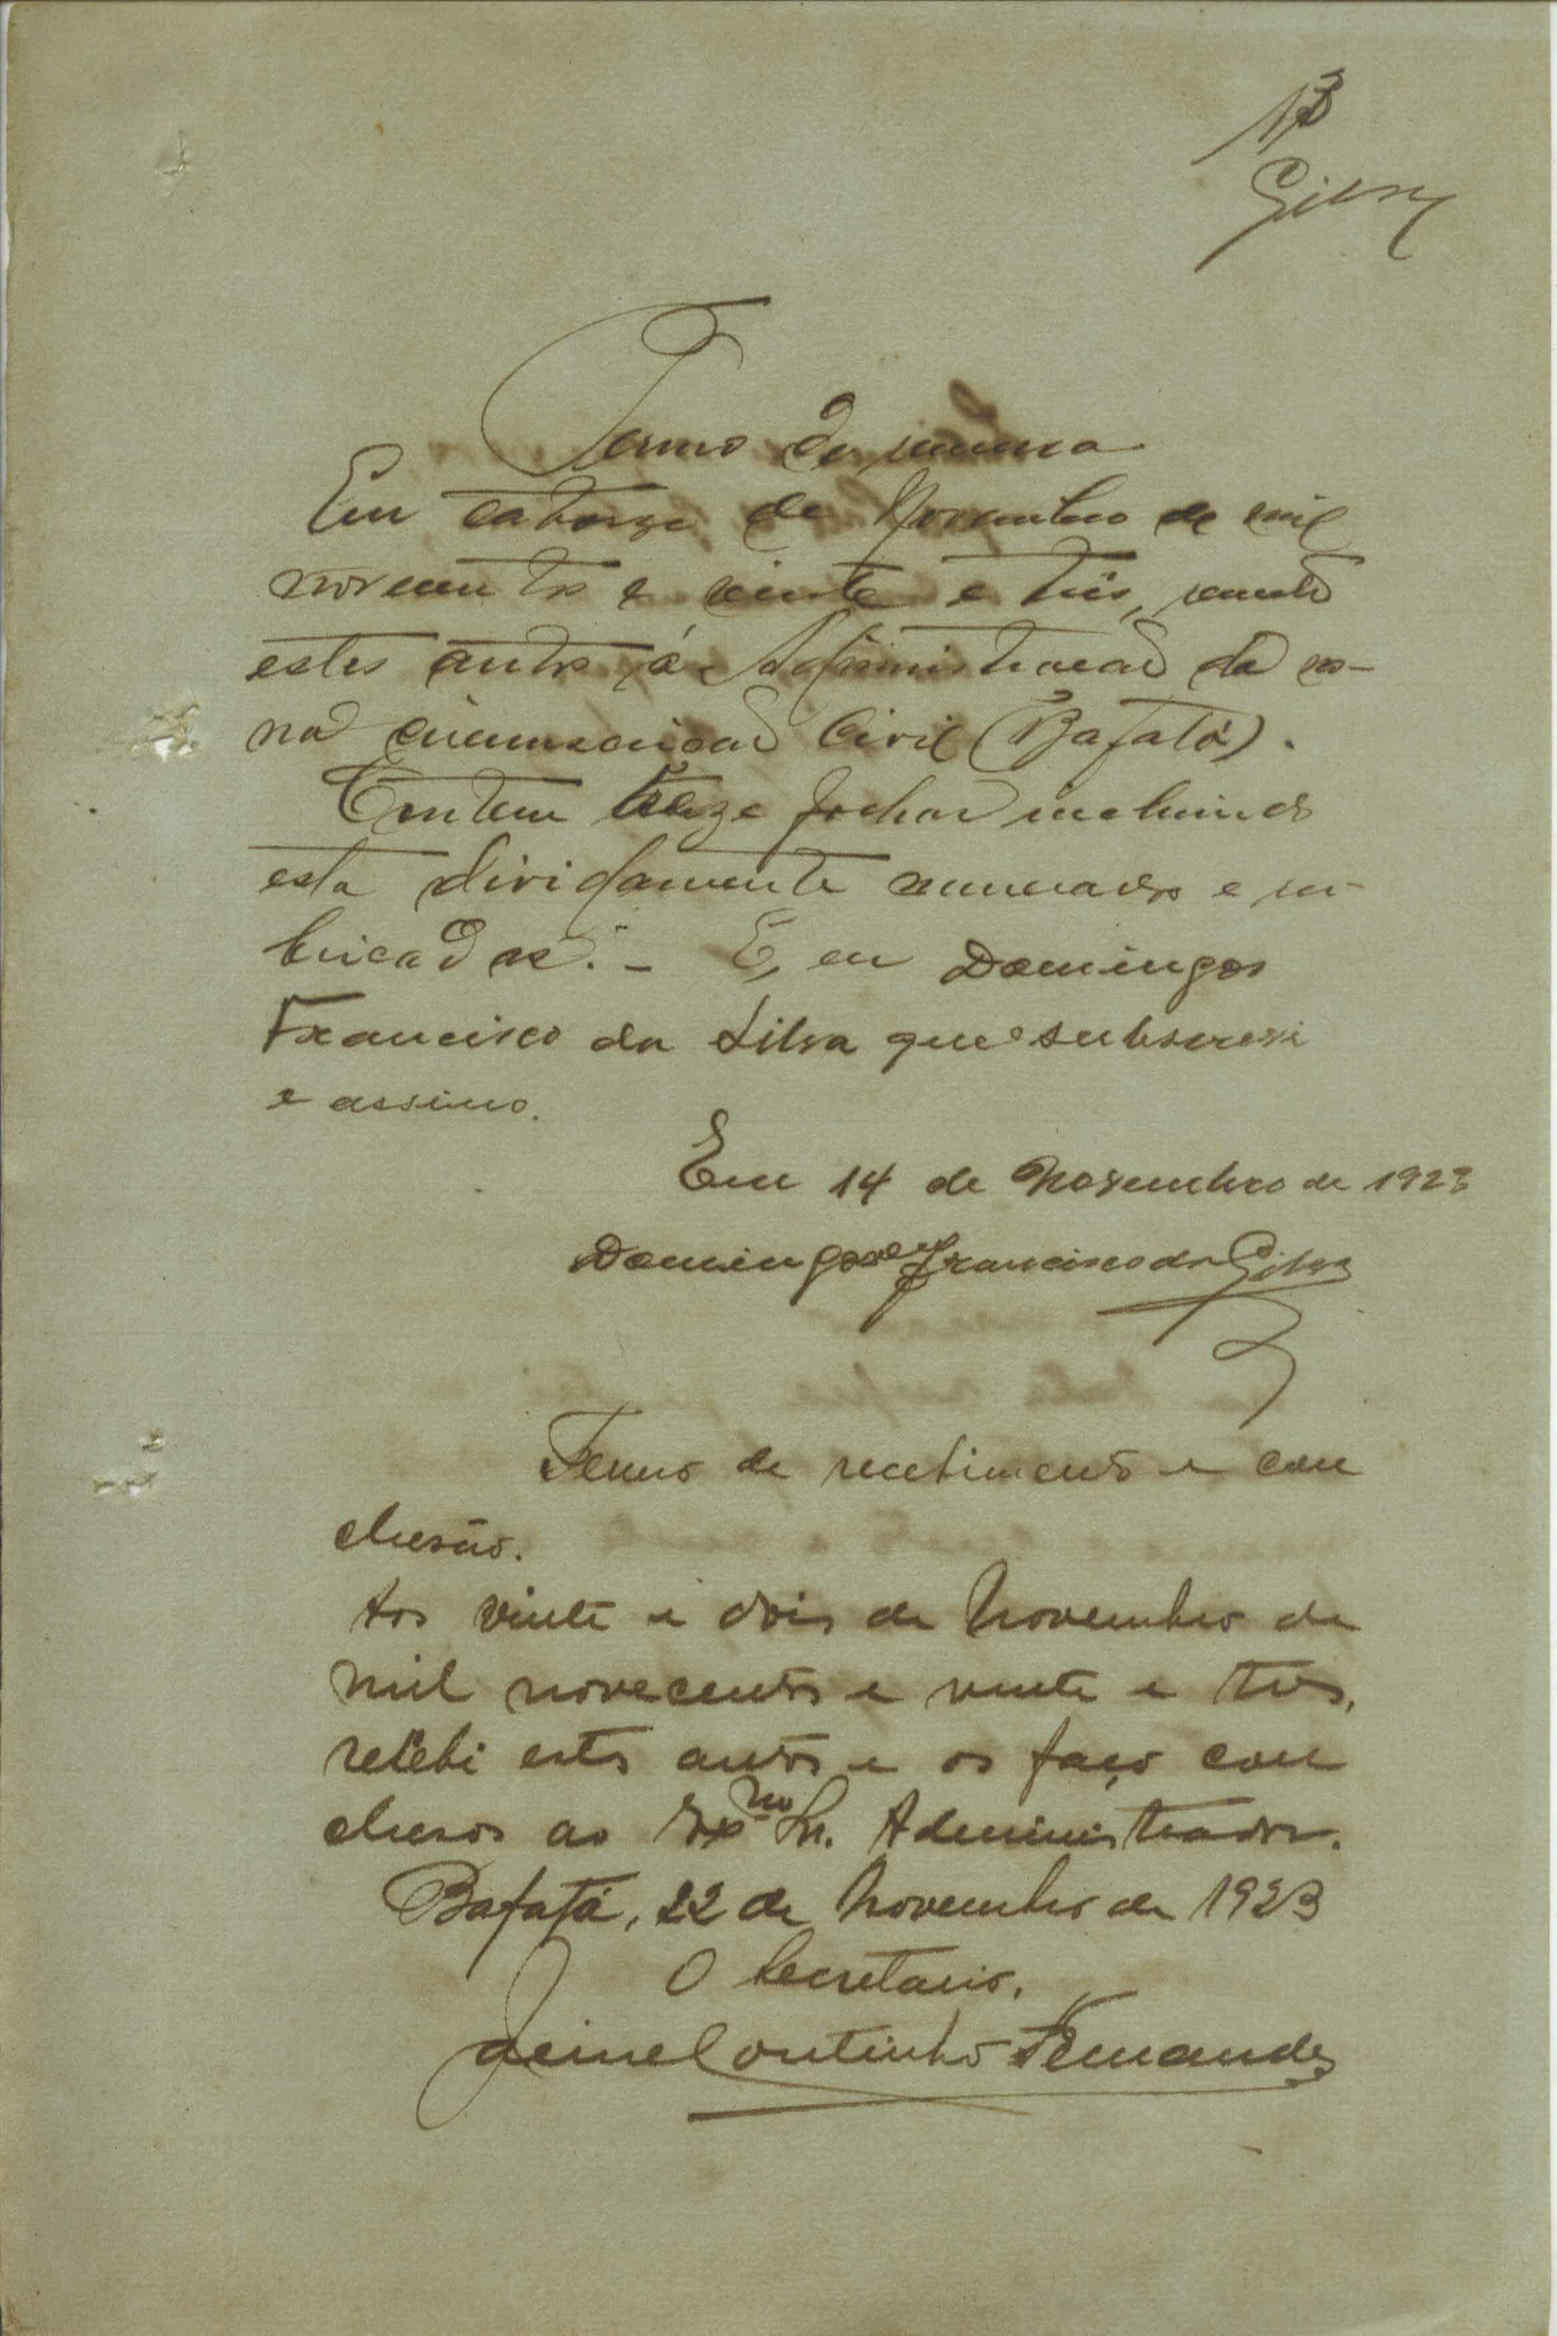 13
Silva
Termo de remessa
Em catorze de Novembro de mil
novecentos e vinte e três, remeto
estes autos á Administração da
circunscrição Civil (Bafatá).
Contem treze folhas incluindo
esta dividamente numeradas e ru-
bricadas. - E, eu Domingos
Francisco da Silva que o subscrevi
e assino.
Em 14 de Novembro de 1923
Domingos Francisco da Silva
Termo de recebimento e con
clusão.
Aos vinte e dois de Novembro de
mil novecentos e vinte e tres,
recebi estes autos e os faço con
clusos ao Exmo Sr. Administrador.
Bafatá, 22 de Novembro de 1923
O Secretario,
Jaime Coutinho Fernandes